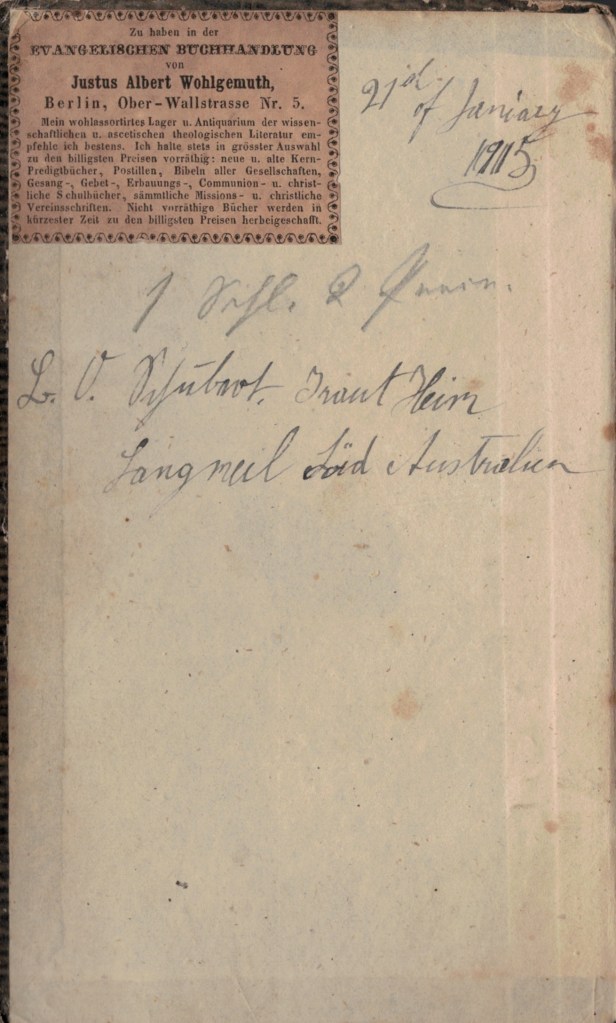 Zu haben in der
EVANGELISCHEN BUCHHANDLUNG
von
Justus Albert Wohlgemuth,
Berlin, Ober-Wallstrasse Nr. 5.
Mein wohlassortirtes Lager u. Antiquarium der wissen-
schaftlichen u. ascetischen theologischen Literatur em-
pfehle ich bestens. Ich halte stets in grösster Auswahl
zu den billigsten Preisen vorräthig: neue u. alte Kern-
Predigtbücher, Postillen, Bibeln aller Gesellschaften,
Gesang-, Gebet-, Erbauungs-, Communion- u. christ-
liche Schulbücher, sämmtliche Missions- u. christliche
Vereinsschriften. Nicht vorräthige Bücher werden in
kürzester Zeit zu den billigsten Preisen herbeigeschafft.
21d.
of January
1915
1
L. O. Schubert.
Langmeil Süd Australien